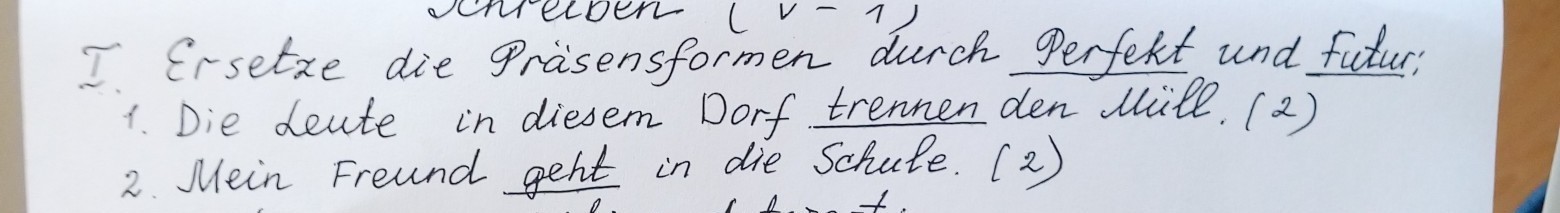 Schreiben (V - 1)
I. Ersetze die Präsensformen durch Perfekt und Futur:
1. Die Leute in diesem Dorf trennen den Müll. (2)
2. Mein Freund geht in die Schule. (2)